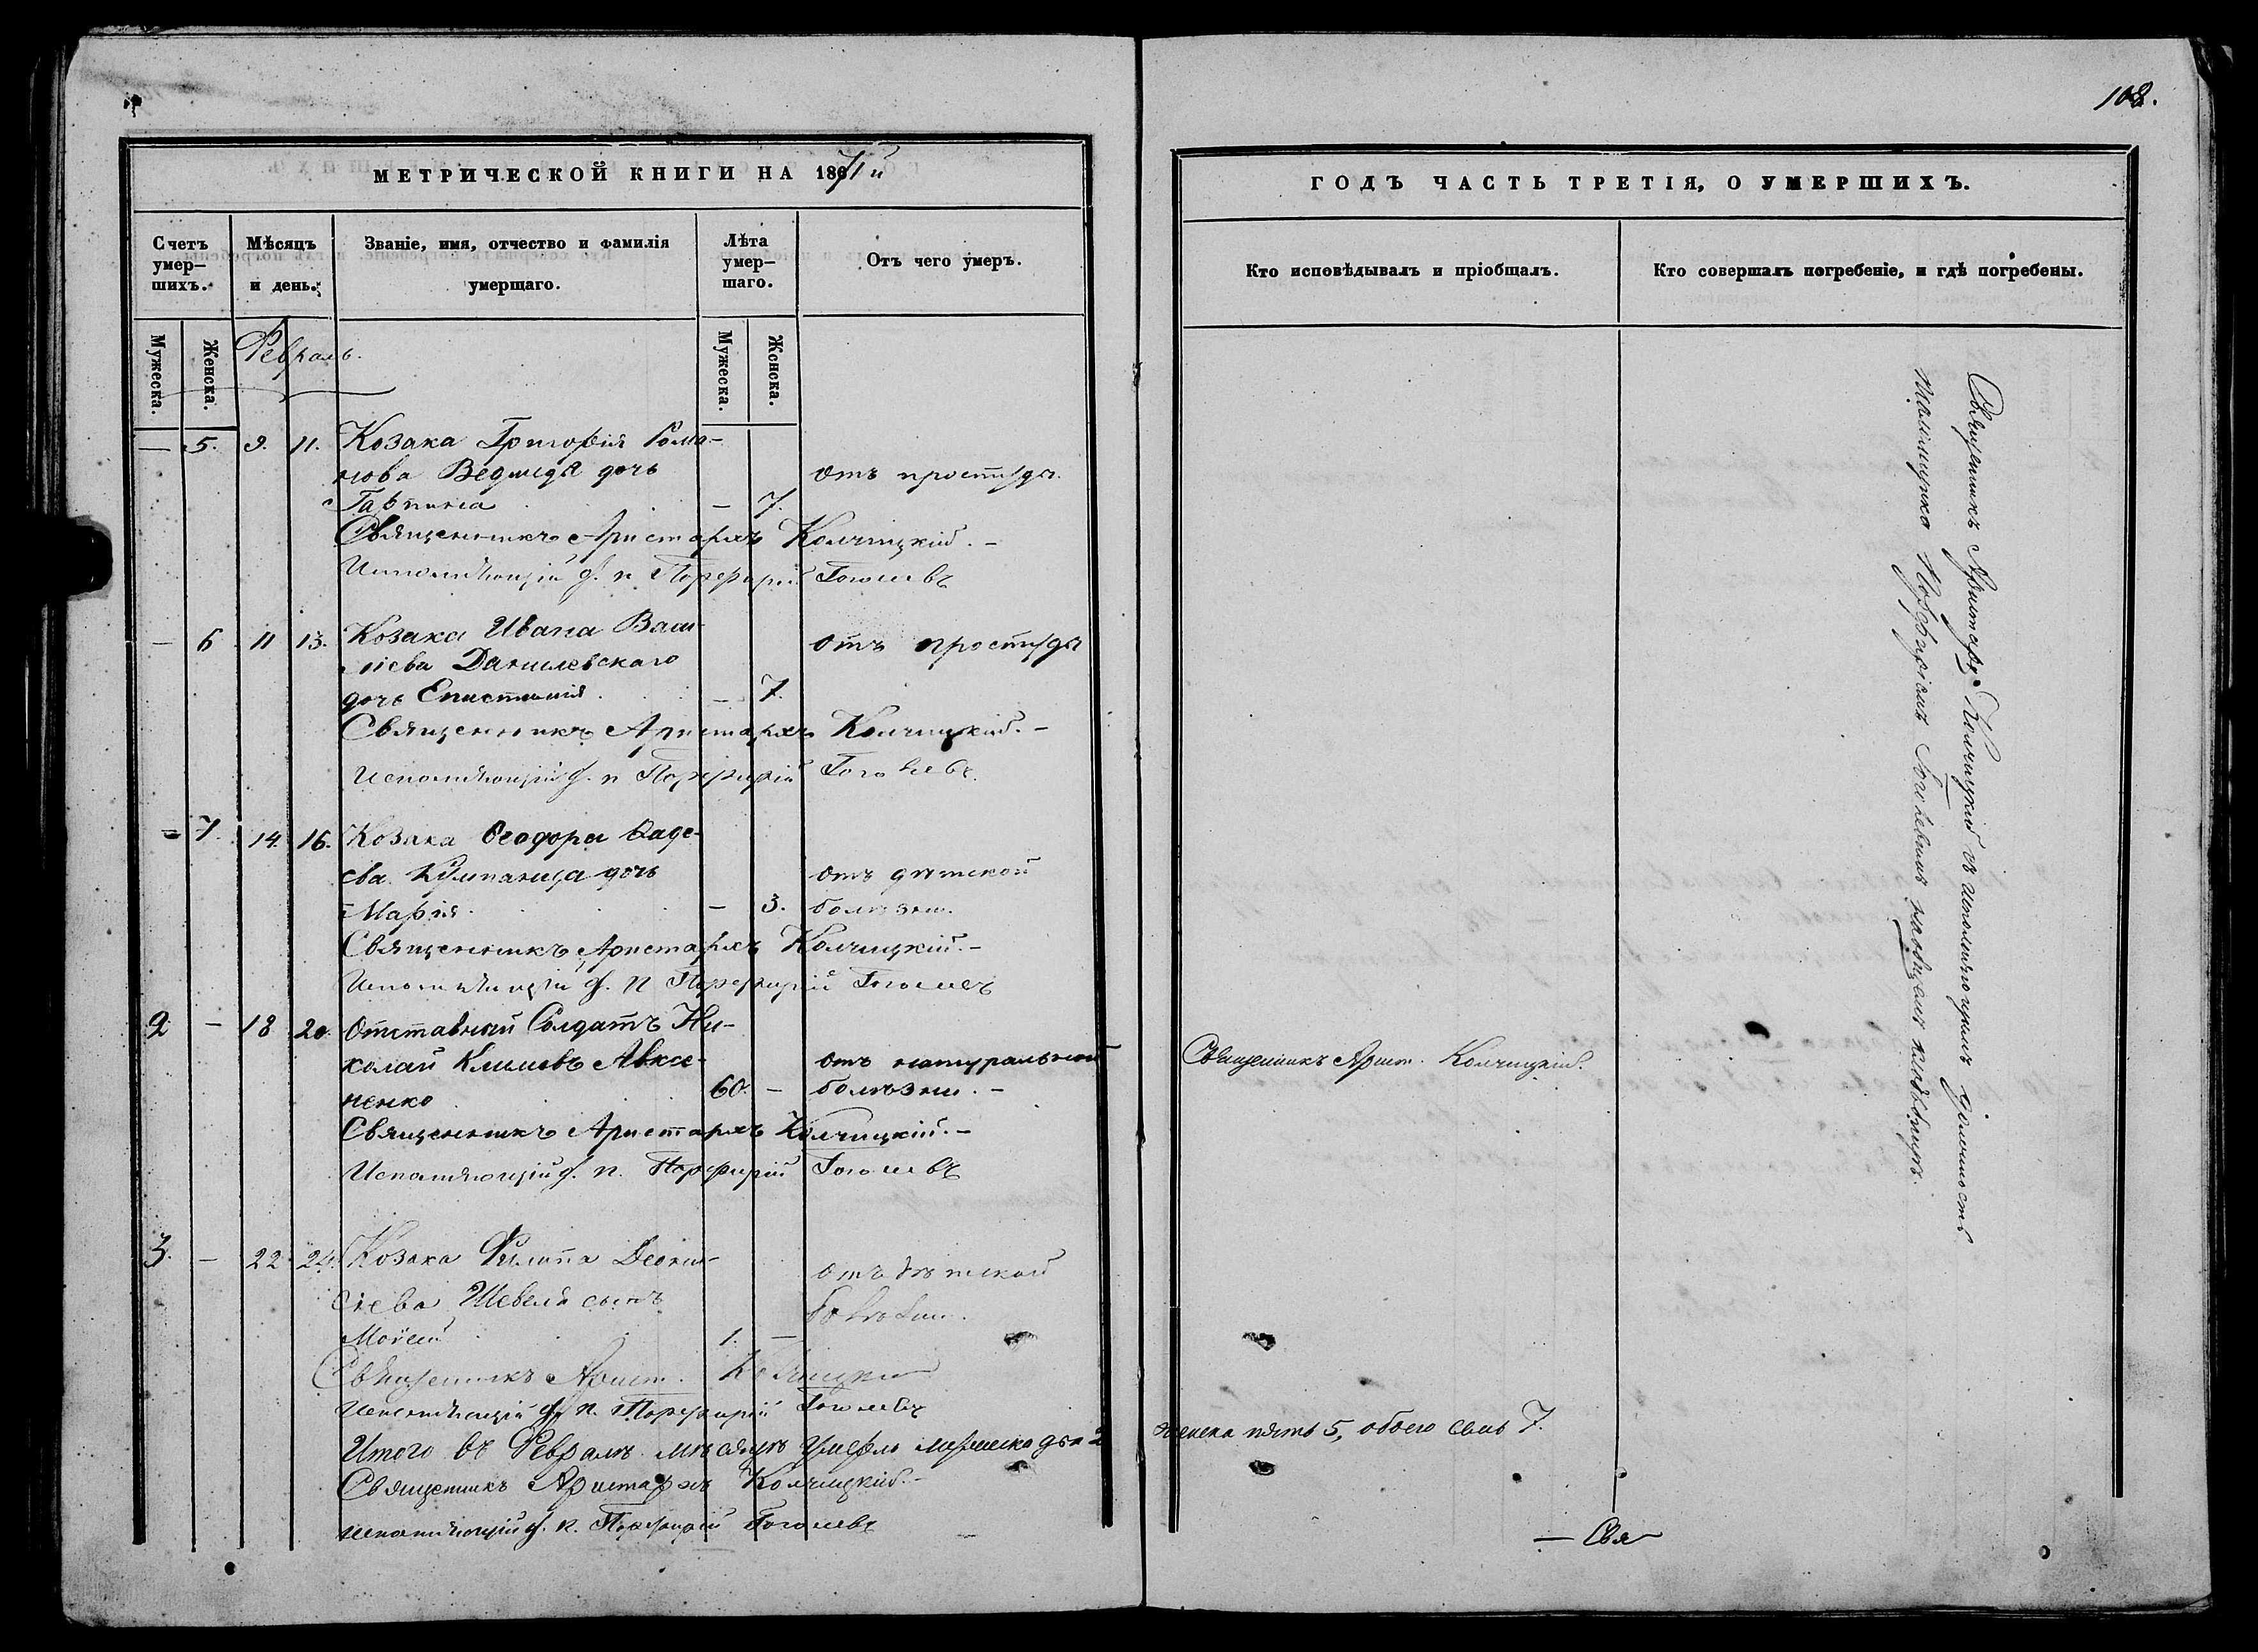 108.
МЕТРИЧЕСКОЙ КНИГИ НА 1871й
ГОДЪ ЧАСТЬ ТРЕТІЯ, О УМЕРШИХЪ.
Счетъ умер-шихъ.
Мѣсяцъ и день.
Званіе, имя, отчество и фамилія умершаго.
Лѣта умер-шаго.
Отъ чего умеръ.
Кто исповѣдывалъ и пріобщалъ.
Кто совершалъ погребеніе, и гдѣ погребены.
Мужеска.
Женска.
Мужеска.
Женска.
Февраль.
— 5. 9. 11. Козака Григорія Рома-
нова Ведмедя дочь отъ простуды.
Гарпина — 7.
Священникъ Аристархъ Колчицкій. —
Исполняющій д. п. Порфирій Гоголевъ
— 6 11 13. Козака Ивана Васи-
ліева Данилевскаго отъ простуды
дочь Епистимія. — 7.
Священникъ Аристархъ Колчицкій. —
Исполняющій д. п. Порфирій Гоголевъ.
— 7. 14. 16. Козака Ѳеодора Ѳаде-
ева дочь отъ дѣтской
Марія. — 3. болѣзни.
Священникъ Аристархъ Колчицкій. —
Исполняющій д. п. Порфирій Гоголевъ
2 — 18 20 Отставный Солдатъ Ни-
колай Климовъ Авксе- отъ натуральной
ненко 60. — болѣзни. —
Священникъ Арист. Колчицкій.
Священникъ Аристархъ Колчицкій. —
Исполняющій д. п. Порфирій Гоголевъ
3. — 22 24. Козака Филиппа Деони-
сіева Шевеля сынъ отъ дѣтской
Моѵсей 1. — болѣзни.
Священникъ Арист. Колчицкій
Исполняющій д. п. Порфирій Гоголевъ
Итого въ Февралѣ мѣсяцѣ умерло мужеска два 2 женска пять 5, обоего 7.
Священникъ Аристархъ Колчицкій. —
Исполняющій д. п. Порфирій Гоголевъ
— Свя
Священникъ Аристархъ Колчицкій съ исполняющимъ должность
Порфиріемъ Гоголевымъ на кладбищѣ.